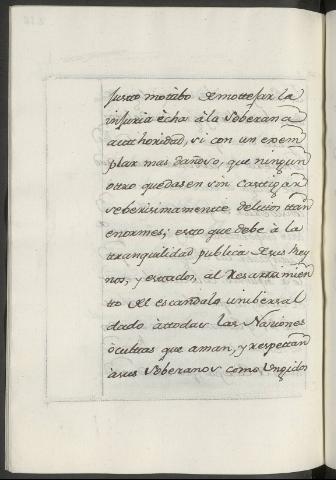 justto motibo demottejar la
injuria echa à la soberana
autthoridad, si con un exem
plar mas dañoso, que ningun
ottro quedasen sin casttigar
seberisimamentte delittos ttan
enormes; estto que debe à la
ttranquilidad publica desus Rey
nos, y esttados, al Resarzimien
to del escandalo unibersal
dado àttodas las Naziones
òcultas que aman, y respettan
àsus soberanos como ungidos